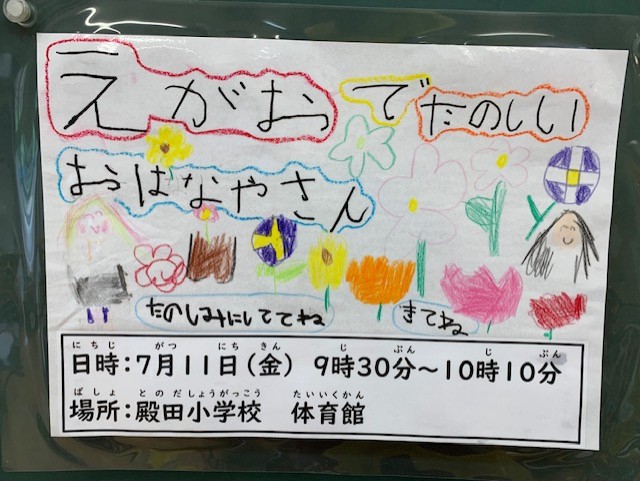 えがおでたのしい
おはなやさん
たのしみにしててね きてね
にちじ がつ にち きん じ ぷん じ ぷん
日時：7月11日（金） 9時30分～10時10分
ばしょ とのだしょうがっこう たいいくかん
場所：殿田小学校 体育館